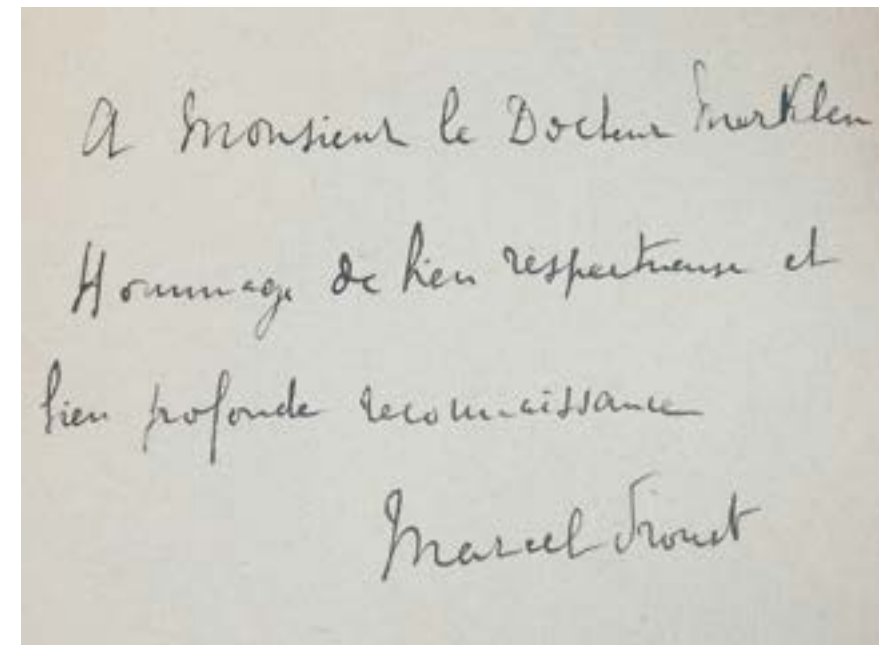 A Monsieur le Docteur Merklen
Hommage de bien respectueuse et
bien profonde reconnaissance
Marcel Proust